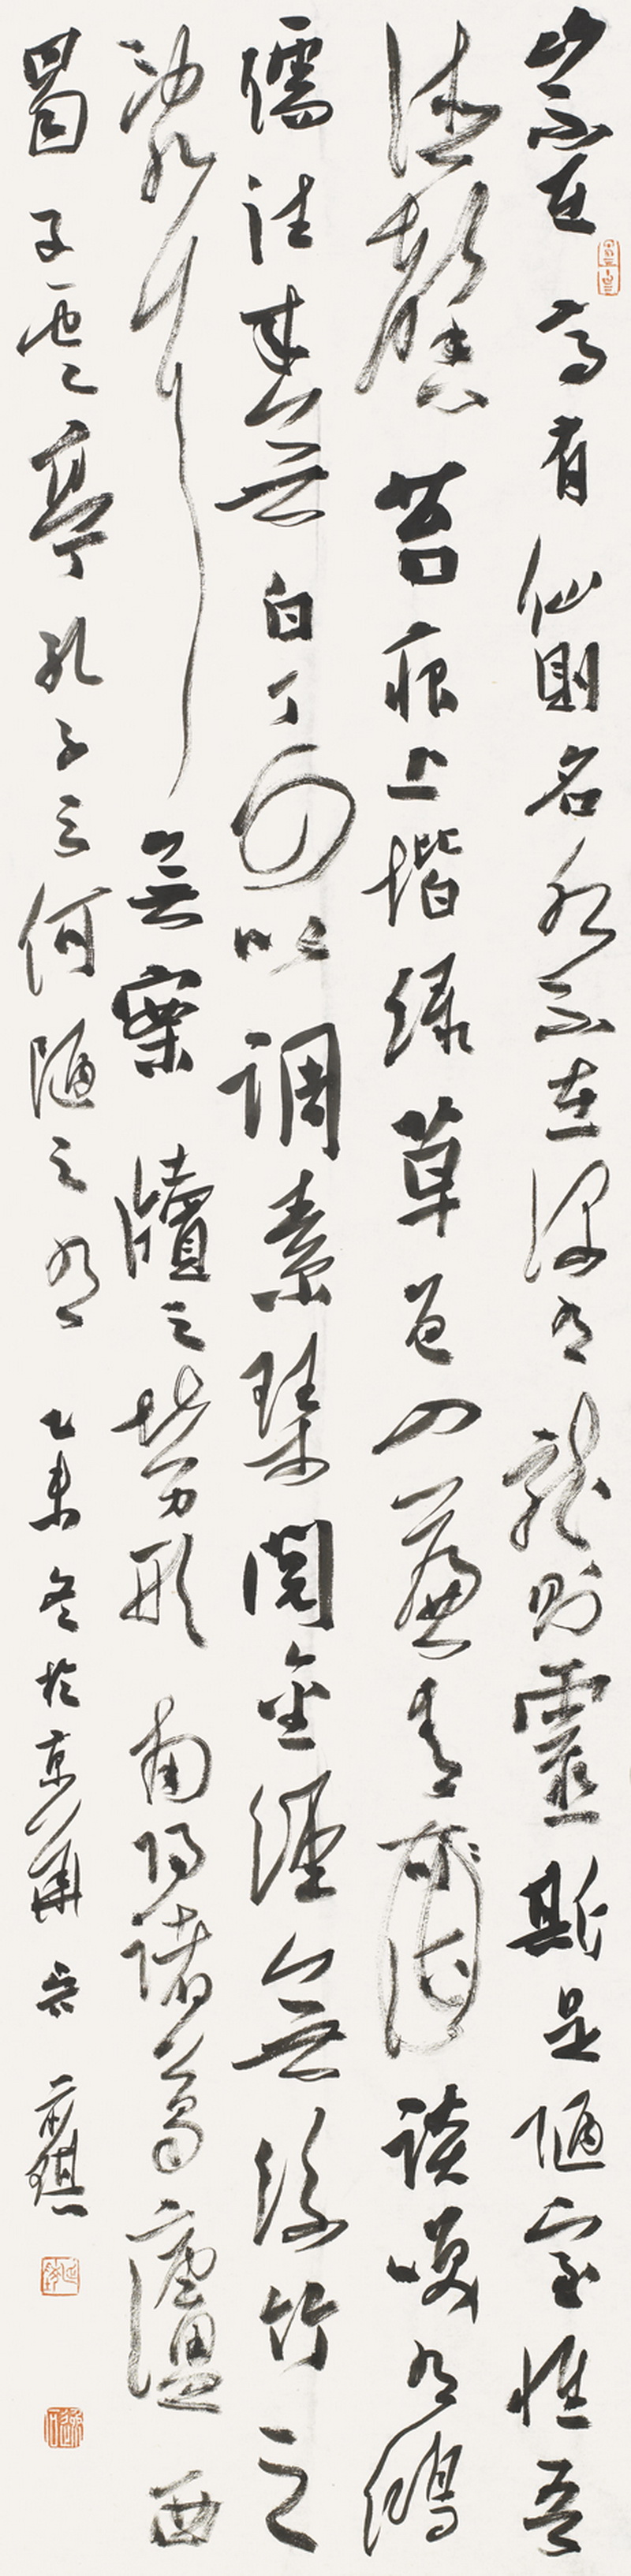 山不在高有仙則名水不在深有龍則靈斯是陋室惟吾
德馨苔痕上堦綠草色入簾青談笑有鴻
儒往來無白丁可以调素琴閱金經無絲竹之
亂耳無案牘之勞形南陽諸葛廬西
蜀子雲亭孔子云何陋之有 乙未冬於京華